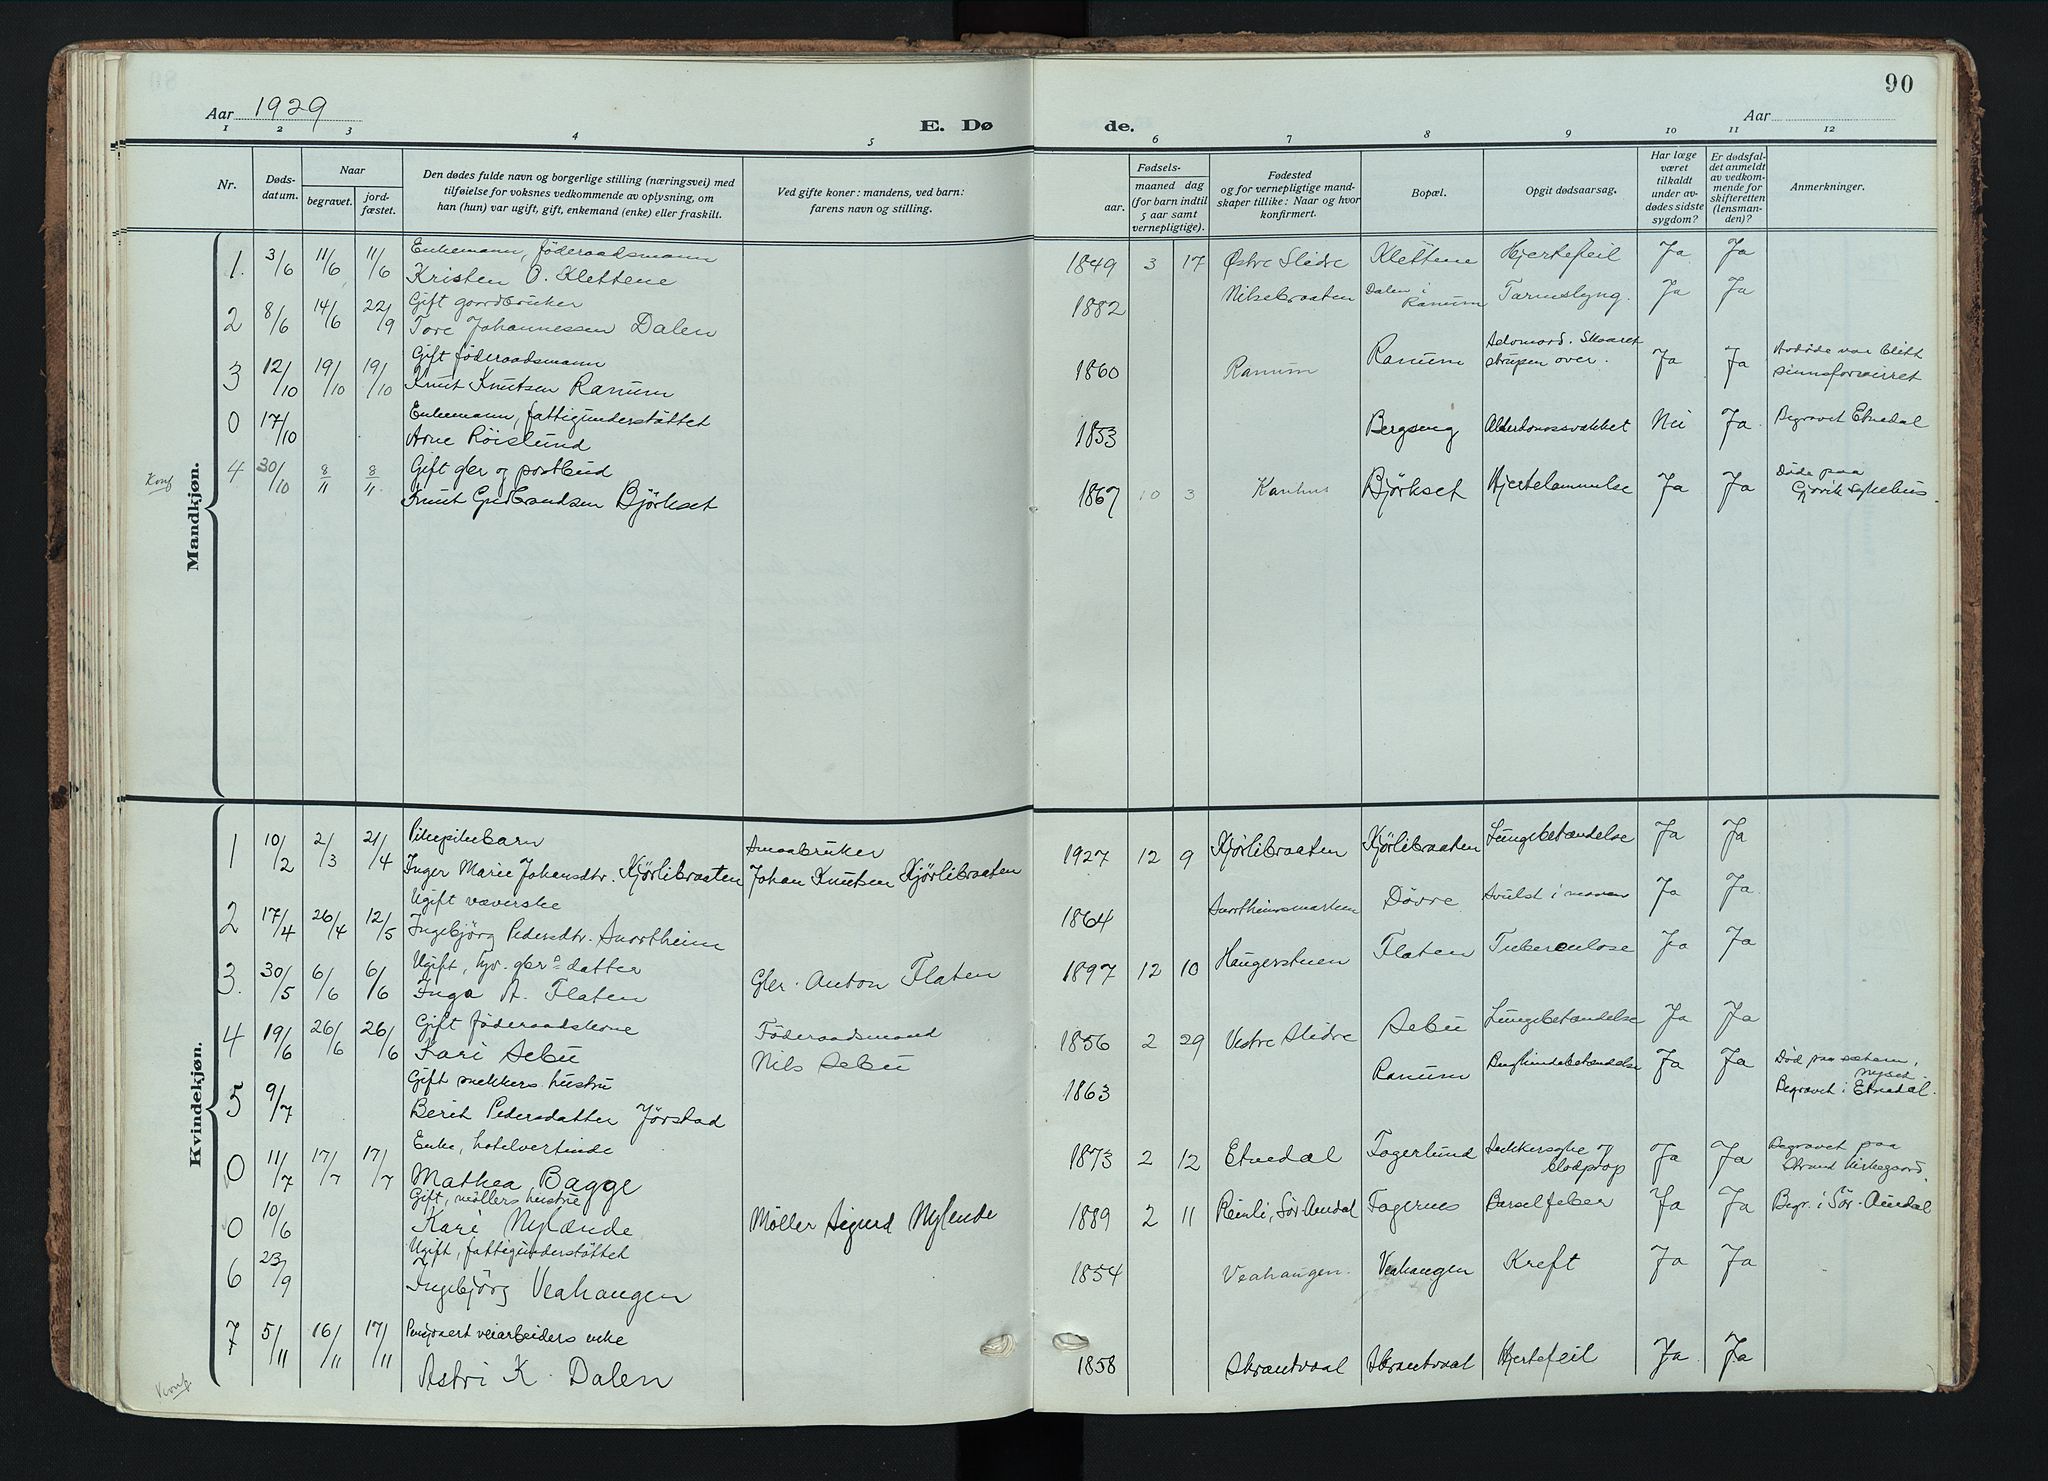 90
Aar 1929
E. Dø
de.
Aar
1 2 3 4 5 6 7 8 9 10 11 12
Nr.
Døds-
datum.
Naar
begravet.
jord-
fæstet.
Den dødes fulde navn og borgerlige stilling (næringsvei) med
tilføielse for voksnes vedkommende av oplysning, om
han (hun) var ugift, gift, enkemand (enke) eller fraskilt.
Ved gifte koner: mandens, ved barn:
farens navn og stilling.
Fødsels-
aar.
maaned dag
(for barn indtil
5 aar samt
vernepligtige).
Fødested
og for vernepligtige mand-
skaper tillike: Naar og hvor
konfirmert.
Bopæl.
Opgit dødsaarsag.
Har læge
været
tilkaldt
under av-
dødes sidste
sygdom?
Er dødsfal-
det anmeldt
av vedkom-
mende for
skifteretten
(lensman-
den)?
Anmerkninger.
Mandkjøn.
1. 3/6 11/6 11/6 Enkemann, föderaadsmann
Kristen O. Klettene
1849 3 17 Østre Slidre Klettene Hjertefeil Ja Ja
2 8/6 14/6 22/9 Gift gardbruker
Tore Johannessen Dalen
1882 Nilsebraaten Dalen i
Ranum Tarmslyng. Ja Ja
3 12/10 19/10 19/10 Gift föderaadsmann
Knut Knutsen Ranum
1860 Ranum Ranum Selvmord. Skaaret
strupen over. Ja Ja Avdöde var blitt
sinnsforvirret
0 17/10 Enkemann, fattigunderstöttet
Arne Röislund
1853 Bergseng Alderdomssvakket Nei Ja Begravet Etnedal
Konf
4 30/10 8/11 8/11 Gift gbr og postbud
Knut Gudbrandsen Björkset
1867 10 3 Björkset Hjertelammelse Ja Ja Döde paa
Gjövik Sykehus
Kvindekjøn.
1 10/2 2/3 21/4 Pikebarn
Inger Marie Johansdtr. Kjörlibraaten
Smaabruker
Johan Knutsen Kjörlibraaten
1927 12 9 Kjörlibraaten Kjörlibraaten Lungebetændelse Ja Ja
2 17/4 26/4 12/5 Ugift væverske
Ingebjörg Pedersdtr. Snortheim
1864 Snortheimsmarken Dövre Svulst i maven Ja Ja
3. 30/5 6/6 6/6 Ugift, tyv. gbrs datter
Inga A. Flaten
Gbr. Anton Flaten
1897 12 10 Haugerstuen Flaten Tuberculose Ja Ja
4 19/6 26/6 26/6 Gift föderaadskone
Kari Sebu
Föderaadsmand
Nils Sebu
1856 2 29 Vestre Slidre Sebu Lungebetændelse Ja Ja
5 9/7 Gift snekkers hustru
Berit Pedersdatter Jörstad
1863 Ranum Brysthindebetændelse Ja Ja Död paa sætern,
Begravet i Etnedal.
0 11/7 17/7 17/7 Enke, hotelvertinde
Mathea Bagge
1873 2 12 Etnedal Fagerlund Sukkersyke og
blodprop Ja Ja Begravet paa
Strand kirkegaard.
0 10/6 Gift, möllers hustru
Kari Nylænde
Møller Sigurd Nylende
1889 2 11 Reinli, Sör Aurdal Fagernes Barselfeber Ja Ja Begr. i Sör-Aurdal
6 23/9 Ugift, fattigunderstöttet
Ingebjörg Veahaugen
1854 Veahaugen. Veahaugen Kreft Ja Ja
7 5/11 16/11 17/11 Pensjonert veiarbeiders enke
Astri K. Dalen
1858 Skrantvaal Skrantvaal Hjertefeil Ja Ja
Konf